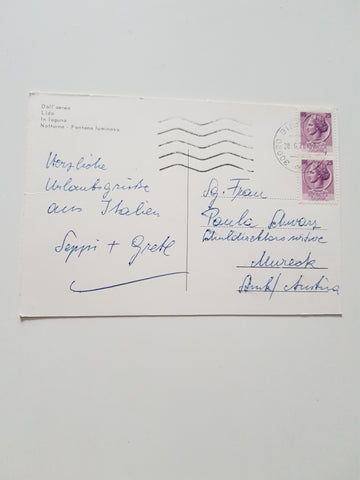 Dall'aereo
Lido
In laguna
Notturno - Fontana luminosa
Herzliche
Urlaubsgrüße
aus Italien
Seppi + Gretl
Sg. Frau
Paula Schwarz
Schuldirektorswitwe
Mureck
Stmk/Austria
30020
28.6.